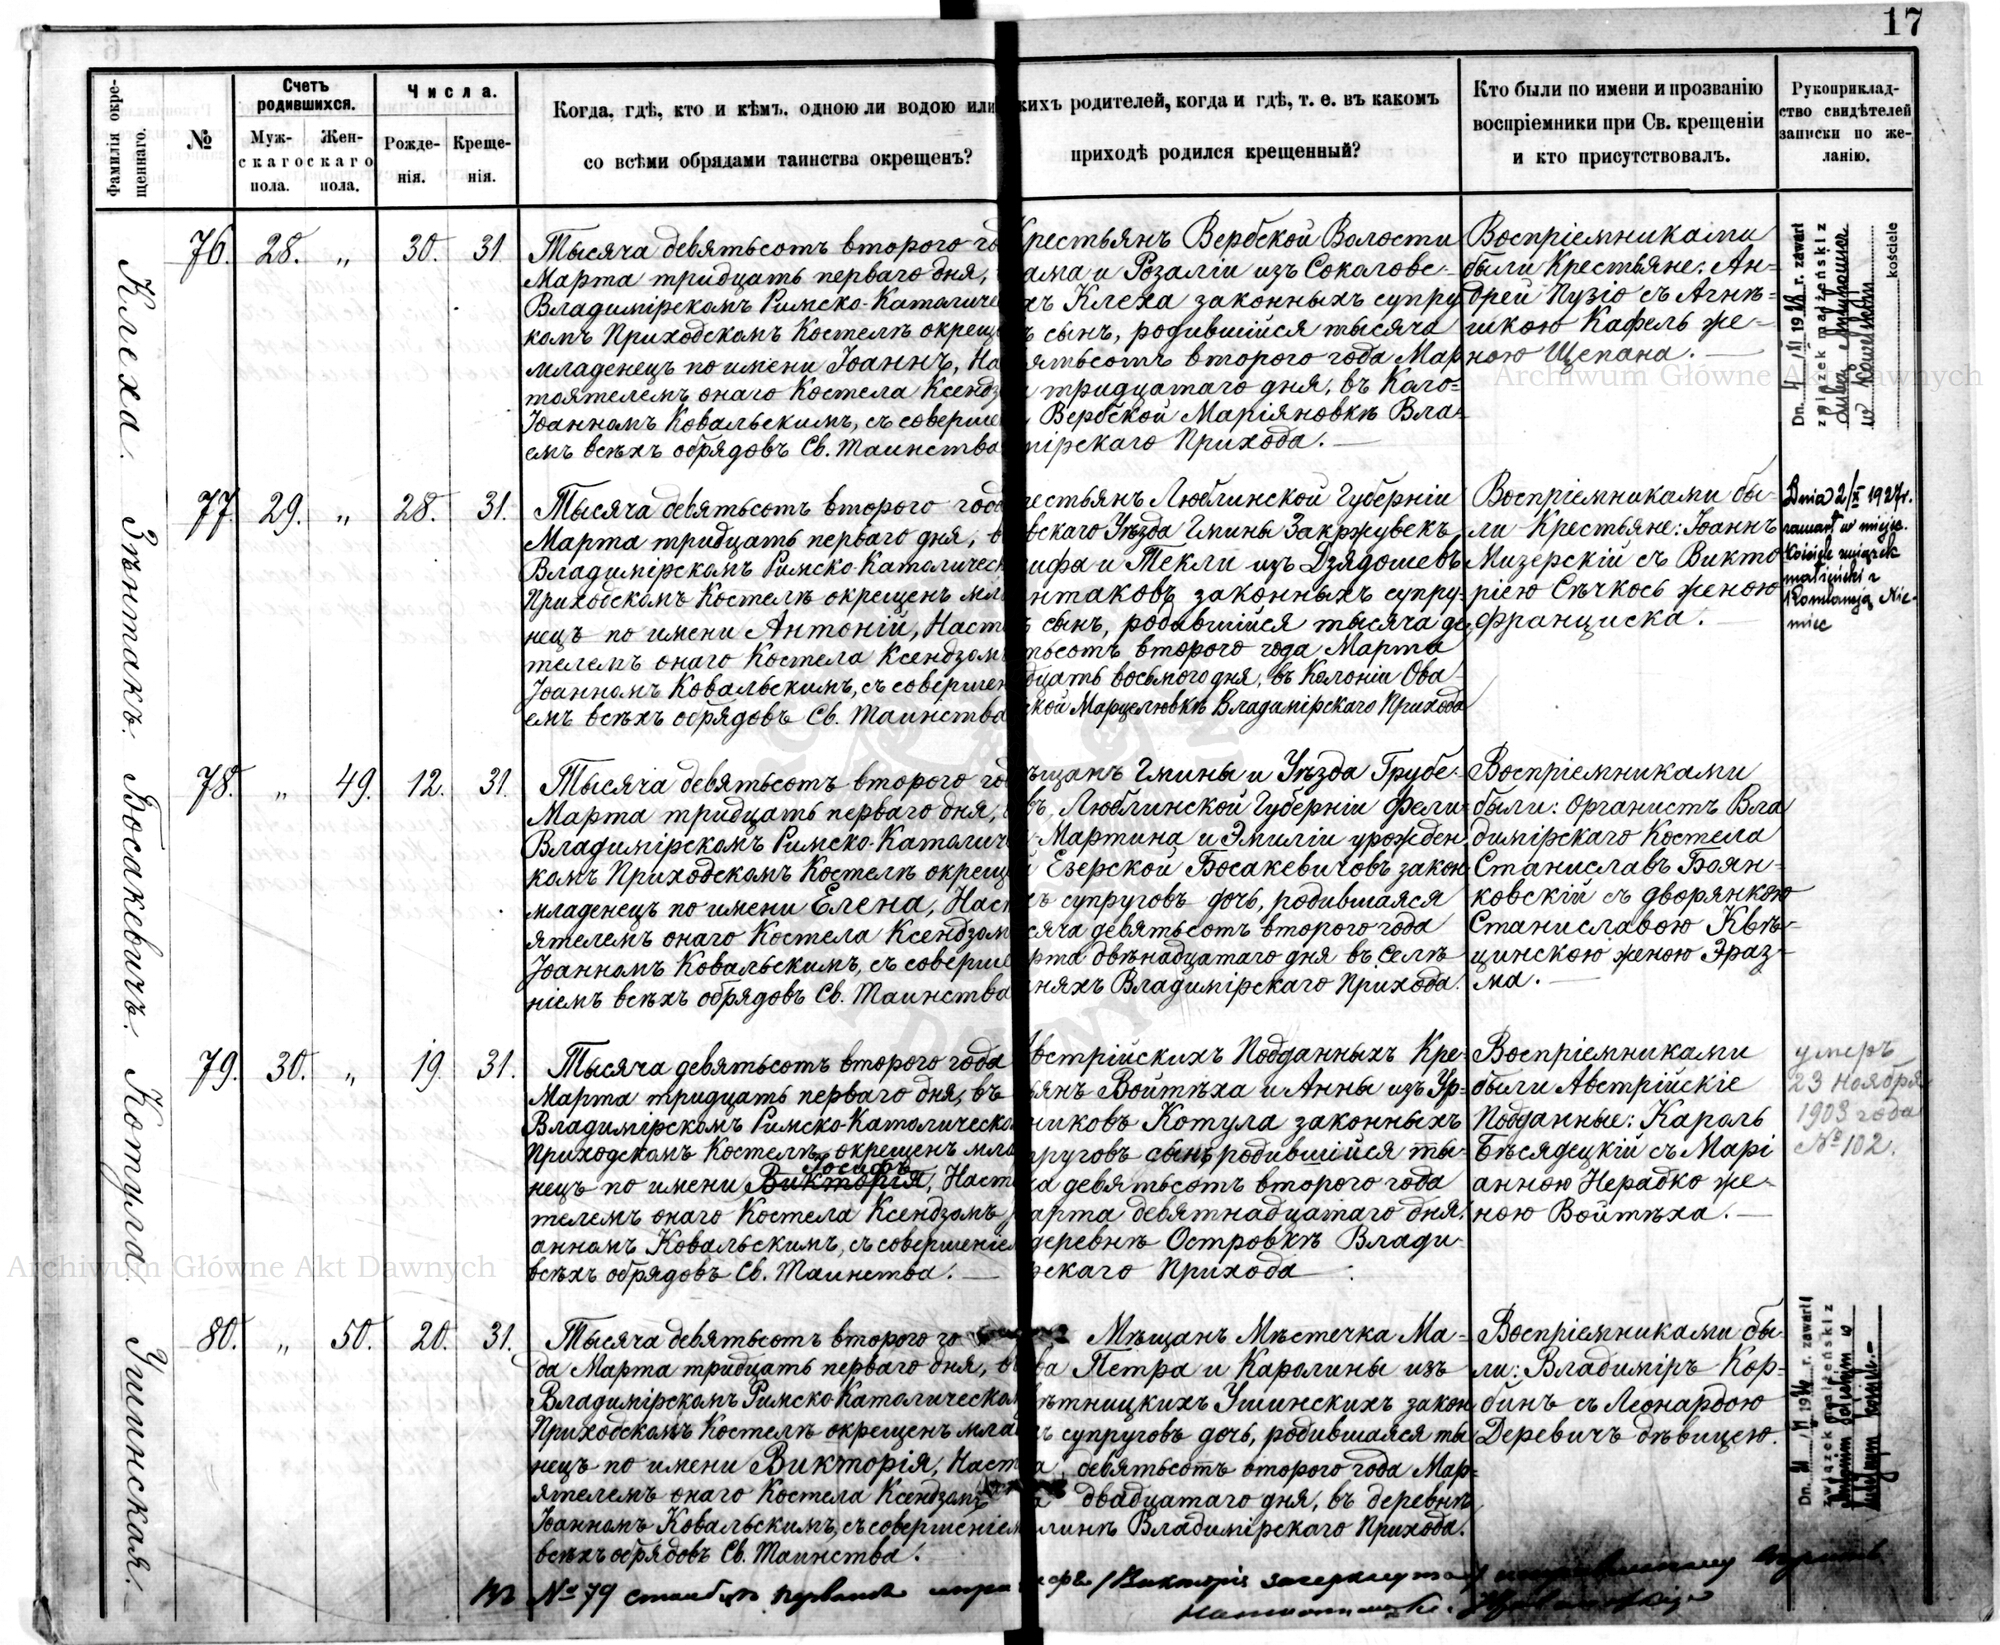 17
Фамилія окре-
щеннаго.
№
Счетъ
родившихся.
Муж-
скаго
пола.
Жен-
скаго
пола.
Числа.
Рожде-
нія.
Креще-
нія.
Когда, гдѣ, кто и кѣмъ, одною ли водою или
со всѣми обрядами таинства окрещенъ?
кихъ родителей, когда и гдѣ, т. е. въ какомъ
приходѣ родился крещенный?
Кто были по имени и прозванію
воспріемники при Св. крещеніи
и кто присутствовалъ.
Рукоприклад-
ство свидѣтелей
записки по же-
ланію.
Клеха.
76. 28. „ 30. 31
Тысяча девятьсотъ второго го
Марта тридцать перваго дня,
Владимірскомъ Римско-Католиче
комъ Приходскомъ Костелѣ окрещ
младенецъ по имени Іоаннъ, На
тоятелемъ онаго Костела Ксендз
Іоанномъ Ковальскимъ, съ соверше
емъ всѣхъ обрядовъ Св. Таинства
крестьянъ Вербской Волости
ама и Розаліи изъ Соколовс-
хъ Клеха законныхъ супру
ъ сынъ, родившійся тысяча
ятьсотъ второго года Мар
тридцатаго дня, въ Каго-
Вербской Маріяновкѣ Вла-
мірскаго Прихода.
Воспріемниками
были Крестьяне: Ан-
дрей Пузіо съ Агнѣ-
шкою Кафель же-
ною Щепана.
Dn. 4/III 1918 r. zawarł
związek małżeński z
kościele
Зѣнтакъ.
77. 29. „ 28. 31.
Тысяча девятьсотъ второго года
Марта тридцать перваго дня, в
Владимірскомъ Римско-Католическ
Приходскомъ Костелѣ окрещенъ мла
нецъ по имени Антоній, Наст
телемъ онаго Костела Ксендзомъ
Іоанномъ Ковальскимъ, съ совершен
емъ всѣхъ обрядовъ Св. Таинства
рестьянъ Люблинской Губерніи
вскаго Уѣзда Гмины Закржувекъ
ифа и Текли изъ Дзядошевъ
нтаковъ законныхъ супру-
ъ сынъ, родившійся тысяча де
тьсотъ второго года Марта
дцать восьмого дня, въ Колоніи Ова-
ской Марцелювкѣ Владимірскаго Прихода
Воспріемниками бы-
ли Крестьяне: Іоаннъ
Мизерскій съ Викто
ріею Сѣчкосъ женою
Франциска.
Dnia 2/X 1927 r.
zawarł w miejsc.
Kościele związek
małżeński z
Konstancją Nie-
miec
Босакевичъ.
78. „ 49. 12. 31.
Тысяча девятьсотъ второго го
Марта тридцать перваго дня,
Владимірскомъ Римско-Католиче
комъ Приходскомъ Костелѣ окрещ
младенецъ по имени Елена, Наст
ятелемъ онаго Костела Ксендзом
Іоанномъ Ковальскимъ, съ соверше
ніемъ всѣхъ обрядовъ Св. Таинства
ѣщанъ Гмины и Уѣзда Грубе-
въ, Люблинской Губерніи Фели
Мартина и Эмиліи урожден
й Езерской Босакевичовъ закон
хъ супруговъ дочь, родившаяся
сяча девятьсотъ второго года
рта двѣнадцатаго дня въ селѣ
няхъ Владимірскаго Прихода.
Воспріемниками
были: Органистъ Вла
димірскаго Костела
Станиславъ Боян-
ковскій съ дворянкою
Станиславою Квѣ-
цинскою женою Эраз-
ма.
Котула.
79. 30. „ 19. 31.
Тысяча девятьсотъ второго года
Марта тридцать перваго дня, въ
Владимірскомъ Римско-Католическо
Приходскомъ Костелѣ окрещенъ мла
Іосифъ
нецъ по имени Викторія, Наст
телемъ онаго Костела Ксендзомъ
анномъ Ковальскимъ, съ совершеніе
всѣхъ обрядовъ Св. Таинства.
Австрійскихъ Подданныхъ Кре-
ьянъ Войтѣха и Анны изъ Ур-
никовъ Котула законныхъ
пруговъ сынъ родившійся ты-
ча девятьсотъ второго года
арта девятнадцатаго дня
деревнѣ Островкѣ Влади-
рскаго Прихода
Воспріемниками
были Австрійскіе
Подданные: Кароль
Бѣсядецкій съ Марі
анною Нерадко же-
ною Войтѣха.
умеръ
23 ноября
1903 года
№ 102.
Ушинская.
80. „ 50. 20. 31.
Тысяча девятьсотъ второго го
да Марта тридцать перваго дня,
Владимірскомъ Римско-Католическом
Приходскомъ Костелѣ окрещенъ мла
нецъ по имени Викторія, Наст
ятелемъ онаго Костела Ксендзомъ
Іоанномъ Ковальскимъ, съ совершеніем
всѣхъ обрядовъ Св. Таинства.
Мѣщанъ Мѣстечка Ма-
ва Петра и Каролины изъ
ѣтницкихъ Ушинскихъ закон
хъ супруговъ дочь, родившаяся ты
девятьсотъ второго года Мар-
двадцатаго дня, въ деревнѣ
линѣ Владимірскаго Прихода.
Воспріемниками бы-
ли: Владиміръ Кор-
бинъ съ Леонардою
Деревичъ дѣвицею.
r. zawarł
związek małżeński z
Въ № 79 столбцѣ первомъ
Archiwum Główne Akt Dawnych
Archiwum Główne Akt Dawnych